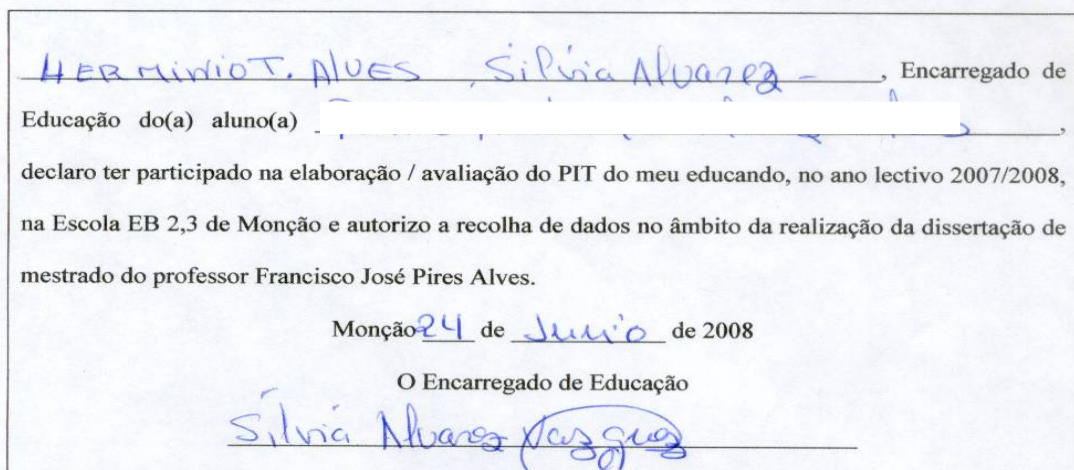 HERMINIO T. ALVES , Silvia Alvarez - , Encarregado de
Educação do(a) aluno(a) ,
declaro ter participado na elaboração / avaliação do PIT do meu educando, no ano lectivo 2007/2008,
na Escola EB 2,3 de Monção e autorizo a recolha de dados no âmbito da realização da dissertação de
mestrado do professor Francisco José Pires Alves.
Monção 24 de Junio de 2008
O Encarregado de Educação
Silvia Alvarez Vazquez